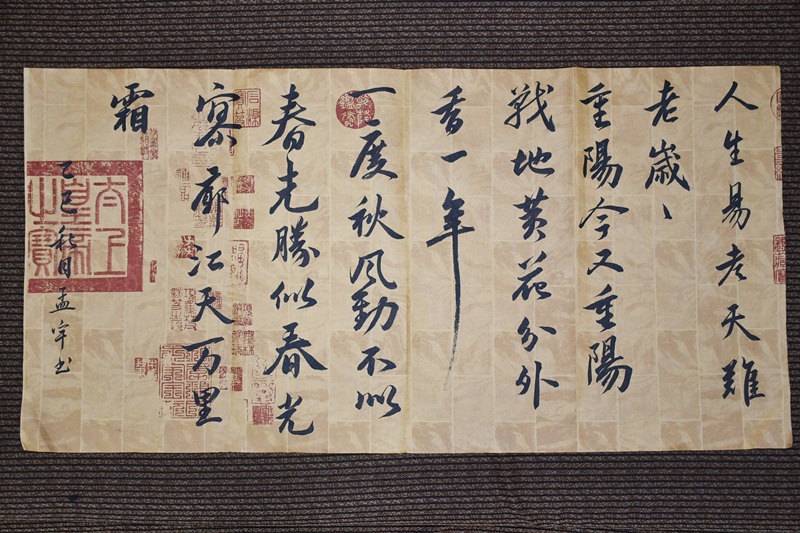 人生易老天難
老歲〻
重陽今又重陽
戦地黄花分外
香一年
一度秋风勁不似
春光勝似春光
寥廓江天万里
霜
乙巳秋月孟宇书
太上皇帝之寶